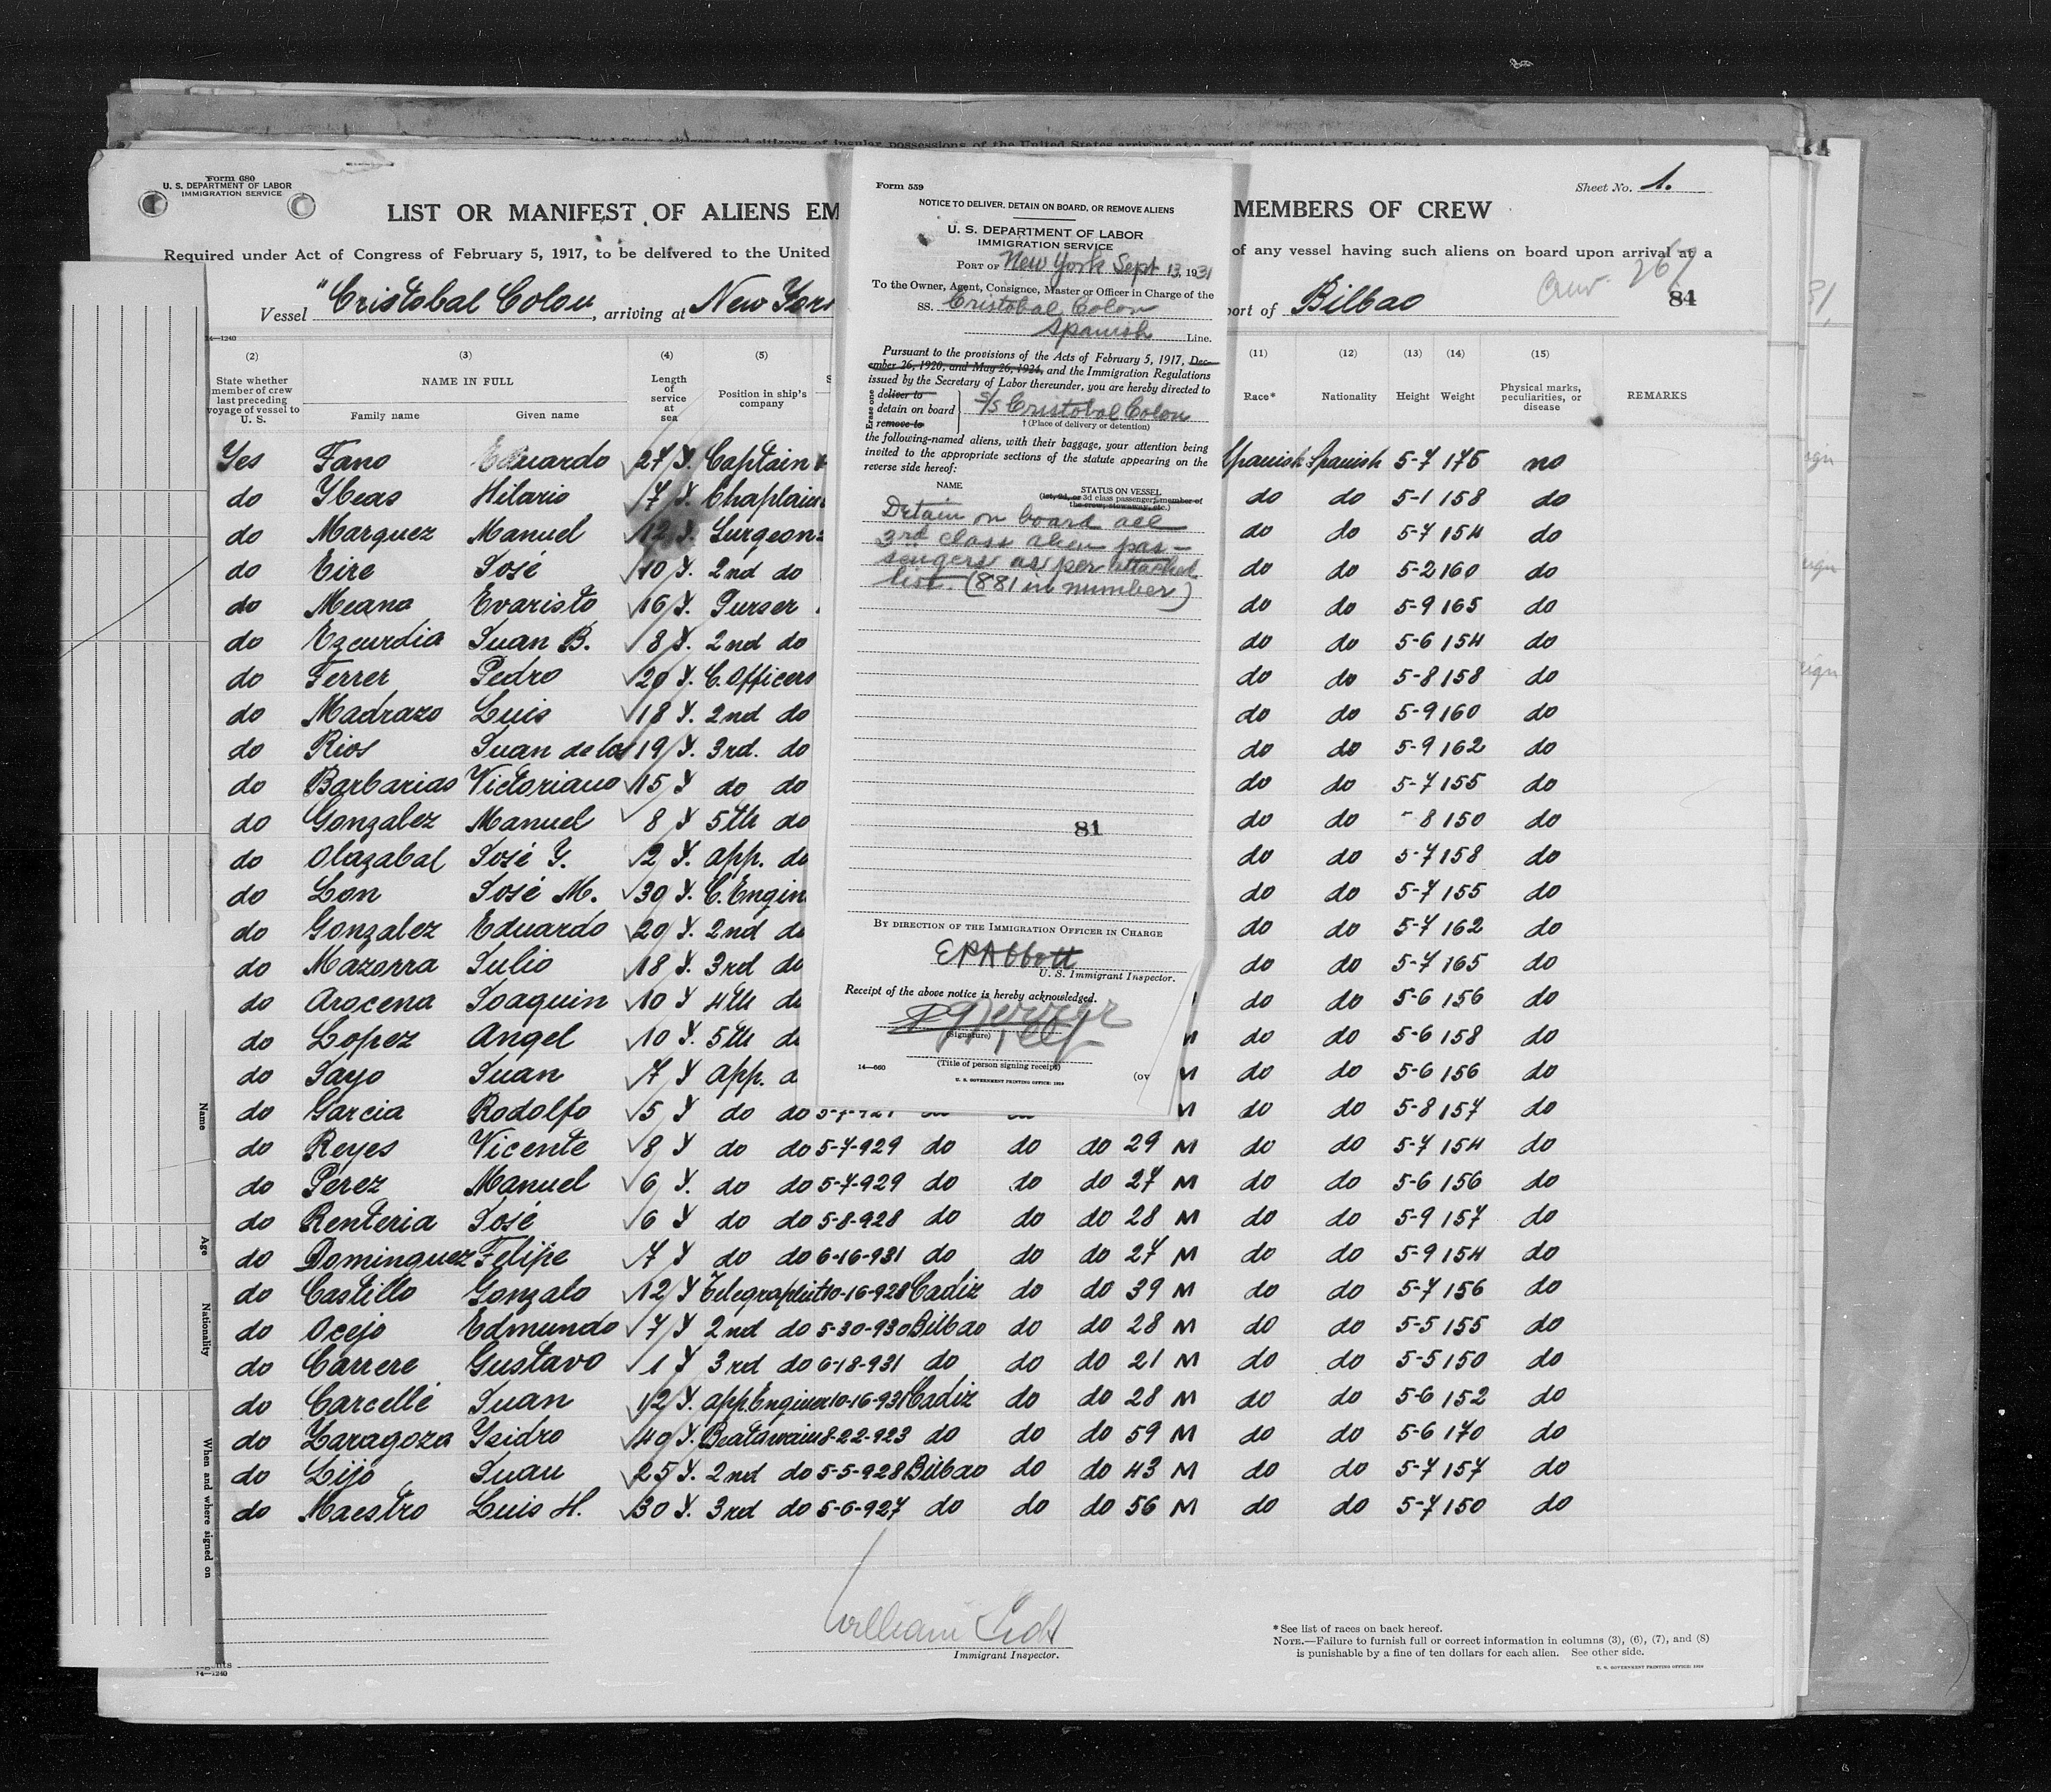 Form 680
U. S. DEPARTMENT OF LABOR
IMMIGRATION SERVICE
Sheet No. 1.
LIST OR MANIFEST OF ALIENS EM
MEMBERS OF CREW
Required under Act of Congress of February 5, 1917, to be delivered to the United
of any vessel having such aliens on board upon arrival at a
Vessel "Cristobal Colon, arriving at New York
port of Bilbao
Crew 267
81
14—1240
(2) (3) (4) (5)
State whether member of crew last preceding voyage of vessel to U. S.
NAME IN FULL
Family name Given name
Length of service at sea
Position in ship's company
(11) (12) (13) (14) (15)
Race* Nationality Height Weight Physical marks, peculiarities, or disease REMARKS
Yes Fano Eduardo 27 Y. Captain Spanish Spanish 5-7 175 no
do Ybeas Hilario 7 Y. Chaplain do do 5-1 158 do
do Marquez Manuel 12 Y. Surgeon do do 5-7 154 do
do Eire José 10 Y. 2nd do do do 5-2 160 do
do Meana Evaristo 16 Y. Purser do do 5-9 165 do
do Ezcurdia Juan B. 8 Y. 2nd do do do 5-6 154 do
do Ferrer Pedro 20 Y. C. Officers do do 5-8 158 do
do Madrazo Luis 18 Y. 2nd do do do 5-9 160 do
do Rios Juan de los 19 Y. 3rd. do do do 5-9 162 do
do Barbarias Victoriano 15 Y do do do do 5-7 155 do
do Gonzalez Manuel 8 Y 5th do do do - 8 150 do
do Olazabal José Y. 2 Y. app. do do do 5-7 158 do
do Lon José M. 30 Y. C. Engin do do 5-7 155 do
do Gonzalez Eduardo 20 Y. 2nd do do do 5-7 162 do
do Mazorra Julio 18 Y. 3rd do do do 5-7 165 do
do Arocena Joaquin 10 Y 4th d do do 5-6 156 do
do Lopez Angel 10 Y. 5th d M do do 5-6 158 do
do Jayo Juan 7 Y app. d M do do 5-6 156 do
do Garcia Rodolfo 5 Y do do M do do 5-8 157 do
do Reyes Vicente 8 Y do do 5-7-929 do do do 29 M do do 5-7 154 do
do Perez Manuel 6 Y. do do 5-7-929 do do do 27 M do do 5-6 156 do
do Renteria José 6 Y do do 5-8-928 do do do 28 M do do 5-9 157 do
do Dominguez Felipe 7 Y do do 6-16-931 do do do 27 M do do 5-9 154 do
do Castillo Gonzalo 12 Y Telegraphist 10-16-928 Cadiz do do 39 M do do 5-7 156 do
do Ocejo Edmundo 7 Y 2nd do 5-30-930 Bilbao do do 28 M do do 5-5 155 do
do Carrere Gustavo 1 Y 3rd do 6-18-931 do do do 21 M do do 5-5 150 do
do Carcellé Juan 12 Y. app Enginer 10-16-931 Cadiz do do 28 M do do 5-6 152 do
do Zaragoza Ysidro 40 Y. Boatswain 8-22-923 do do do 59 M do do 5-6 170 do
do Lijo Juan 25 Y. 2nd do 5-5-928 Bilbao do do 43 M do do 5-7 157 do
do Maestro Luis H. 30 Y. 3rd do 5-6-927 do do do 56 M do do 5-7 150 do
William
Immigrant Inspector.
* See list of races on back hereof.
NOTE.—Failure to furnish full or correct information in columns (3), (6), (7), and (8)
is punishable by a fine of ten dollars for each alien. See other side.
U. S. GOVERNMENT PRINTING OFFICE: 1929
14—1240
Form 559
NOTICE TO DELIVER, DETAIN ON BOARD, OR REMOVE ALIENS
U. S. DEPARTMENT OF LABOR
IMMIGRATION SERVICE
PORT OF New York Sept 13, 1931
To the Owner, Agent, Consignee, Master or Officer in Charge of the
SS. Cristobal Colon
Spanish Line.
Pursuant to the provisions of the Acts of February 5, 1917, Dec-
ember 26, 1920, and May 26, 1924, and the Immigration Regulations
issued by the Secretary of Labor thereunder, you are hereby directed to
Erase one
deliver to
detain on board
remove to
S/S Cristobal Colon
† (Place of delivery or detention)
the following-named aliens, with their baggage, your attention being
invited to the appropriate sections of the statute appearing on the
reverse side hereof:
NAME STATUS ON VESSEL
(1st, 2d, or 3d class passenger, member of
the crew, stowaway, etc.)
Detain on board all
3rd class alien pas-
sengers as per attached
list. (881 in number)
81
BY DIRECTION OF THE IMMIGRATION OFFICER IN CHARGE
E P Abbott
U. S. Immigrant Inspector.
Receipt of the above notice is hereby acknowledged.
(Signature)
(Title of person signing receipt)
14—660
(ov
U. S. GOVERNMENT PRINTING OFFICE: 1929
Name
Age
Nationality
When and where signed on